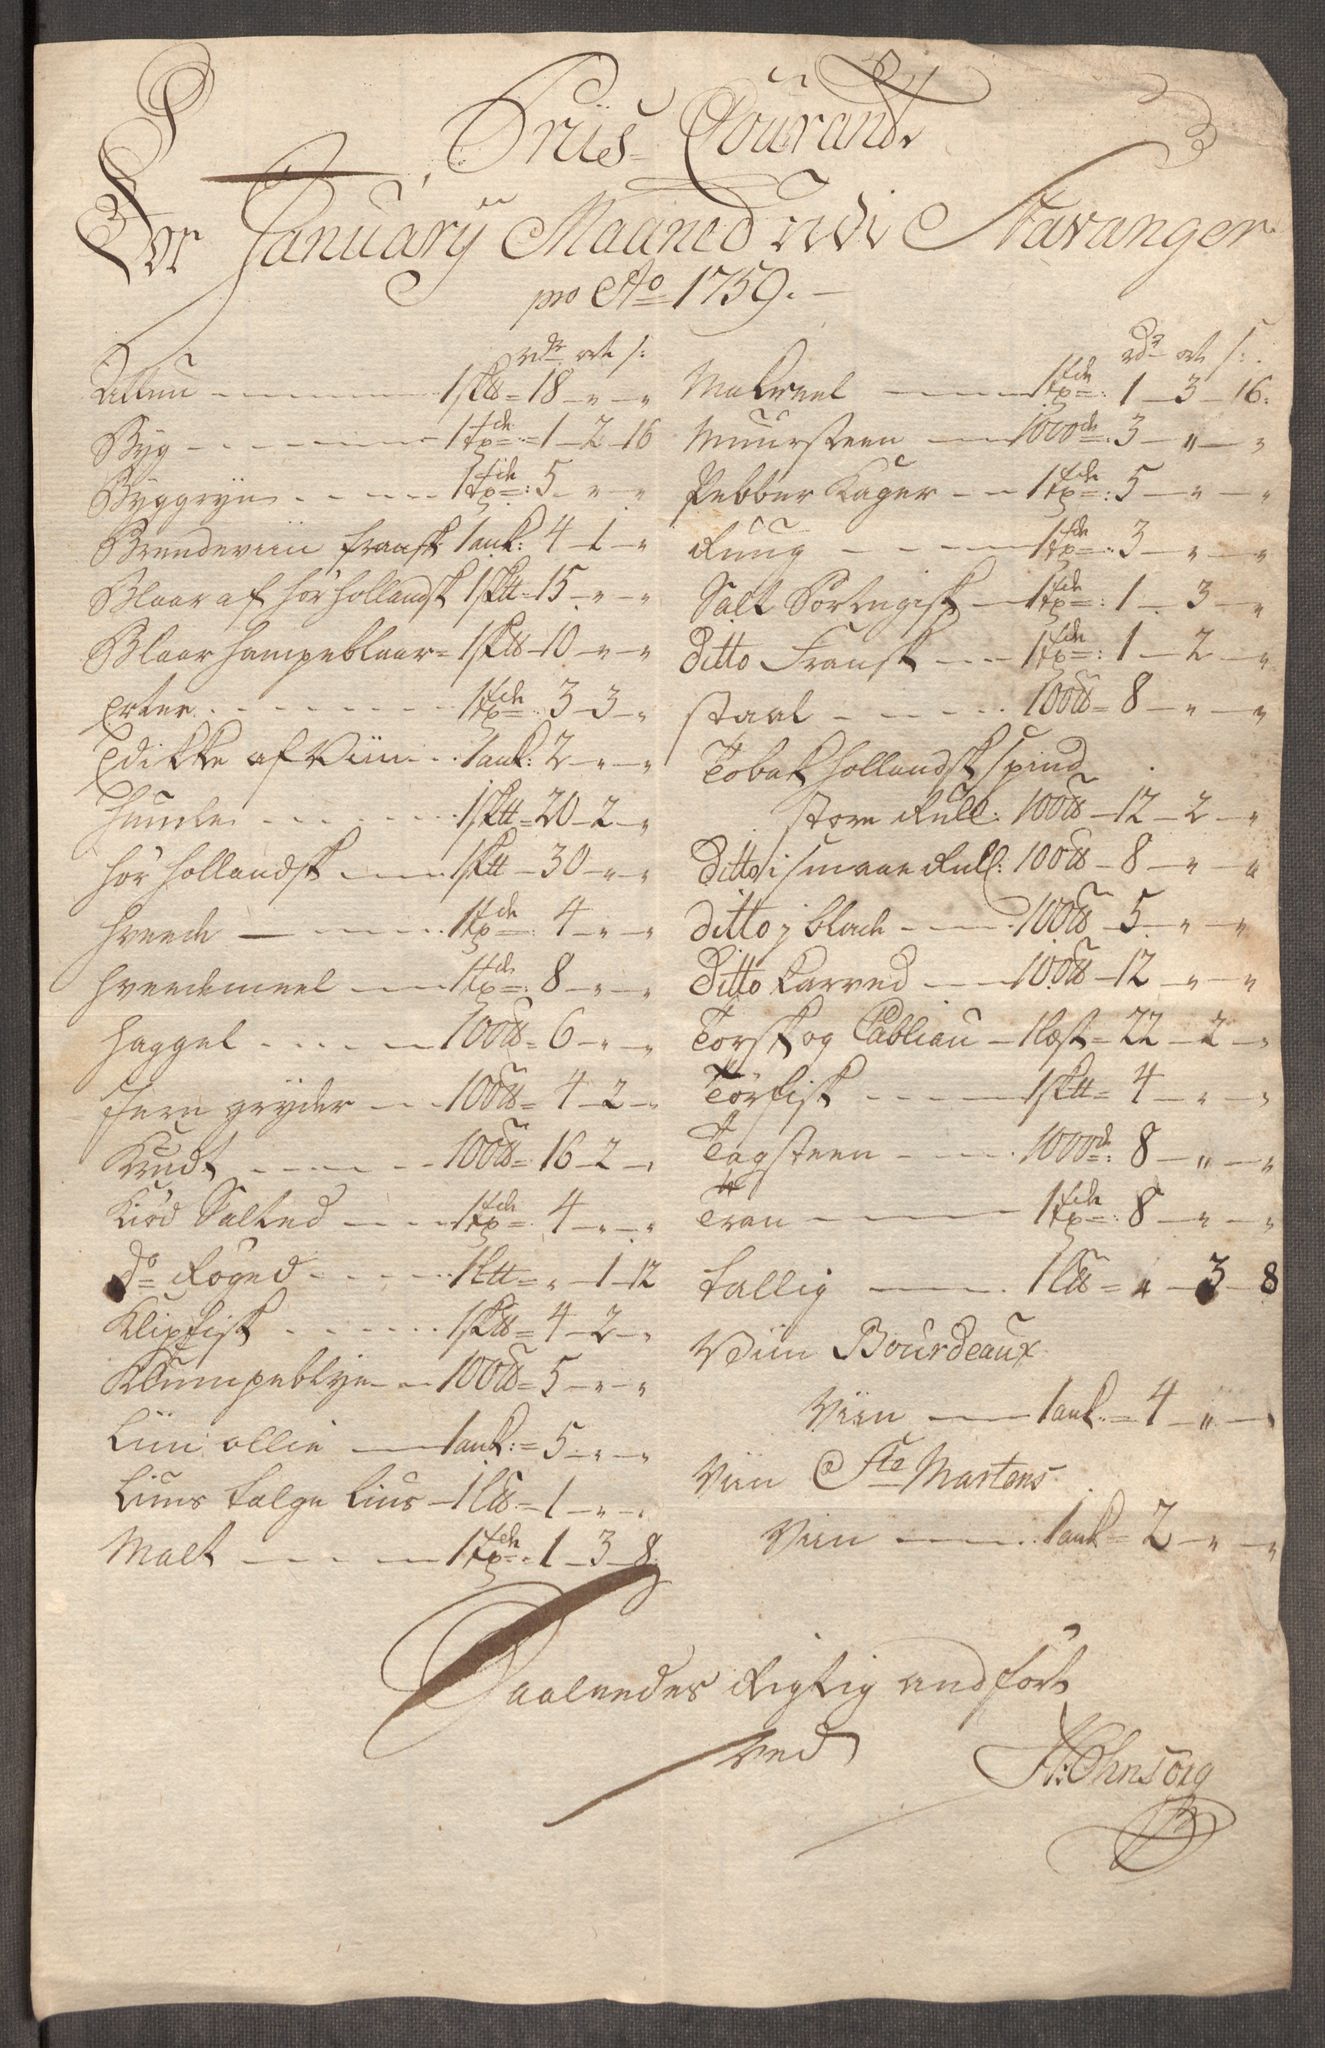 Priis Courant
For January Maaned udi Stavanger
pro Ao 1759.
rdr ort s:
Allun 1 sk℔ = 18 - " - "
Byg 1 tde = 1 - 2 - 16
Byggryn 1 tde: 5 - " - "
Brendeviin fransk 1 ank: 4 - 1 - "
Blaar af hør hollandsk 1 sk℔ = 15 - " - "
Blaar hampeblaar = 1 sk℔ - 10 - " - "
Erter 1 tde: 3 - 3 - "
Edikke af Viin 1 ank: 2 - " - "
Humle 1 sk℔ = 20 - 2 - "
hør hollandsk 1 sk℔ - 30 - " - "
hvede 1 tde: 4 - " - "
hvedemeel 1 tde: 8 - " - "
haggel 100 ℔ = 6 - " - "
Jern gryder 100 ℔ = 4 - 2 - "
Krudt 100 ℔ = 16 - 2 - "
Kiød Salted 1 tde: 4 - " - "
Do Røged 1 L℔ = " - 1 - 12
Klipfisk 1 sk℔ = 4 - 2 - "
Klumpeblye 100 ℔ = 5 - " - "
Liin ollie 1 ank: = 5 - " - "
Liuus talge Liuus 1 L℔ - 1 - " - "
Malt 1 tde: 1 - 3 - 8
rdr ort s:
Makreel 1 tde: 1 - 3 - 16
Muursteen 1000de: 3 - " - "
Pebber Kager 1 tde: 5 - " - "
Rug 1 tde: 3 - " - "
Salt Portugisk 1 tde: 1 - 3 - "
Ditto Fransk 1 tde: 1 - 2 - "
staal 100 ℔ = 8 - " - "
Tobak hollandsk spind
store Rull: 100 ℔ - 12 - 2 - "
Ditto i smaae Rull: 100 ℔ - 8 - " - "
ditto j blade 100 ℔ - 5 - " - "
Ditto Karved 100 ℔ - 12 - " - "
Torsk og Cabliau 1 Læst = 22 - 2 - "
Tørfisk 1 sk℔ = 4 - " - "
Tagsteen 1000de: 8 - " - "
Tran 1 tde: 8 - " - "
tallig 1 L℔ = " - 3 - 8
Viin Bourdeaux
Viin 1 ank: = 4 - " - "
Viin Ste Martens
Viin 1 ank = 2 - " - "
Saaledes Rigtig andført
ved
Ohnsorg